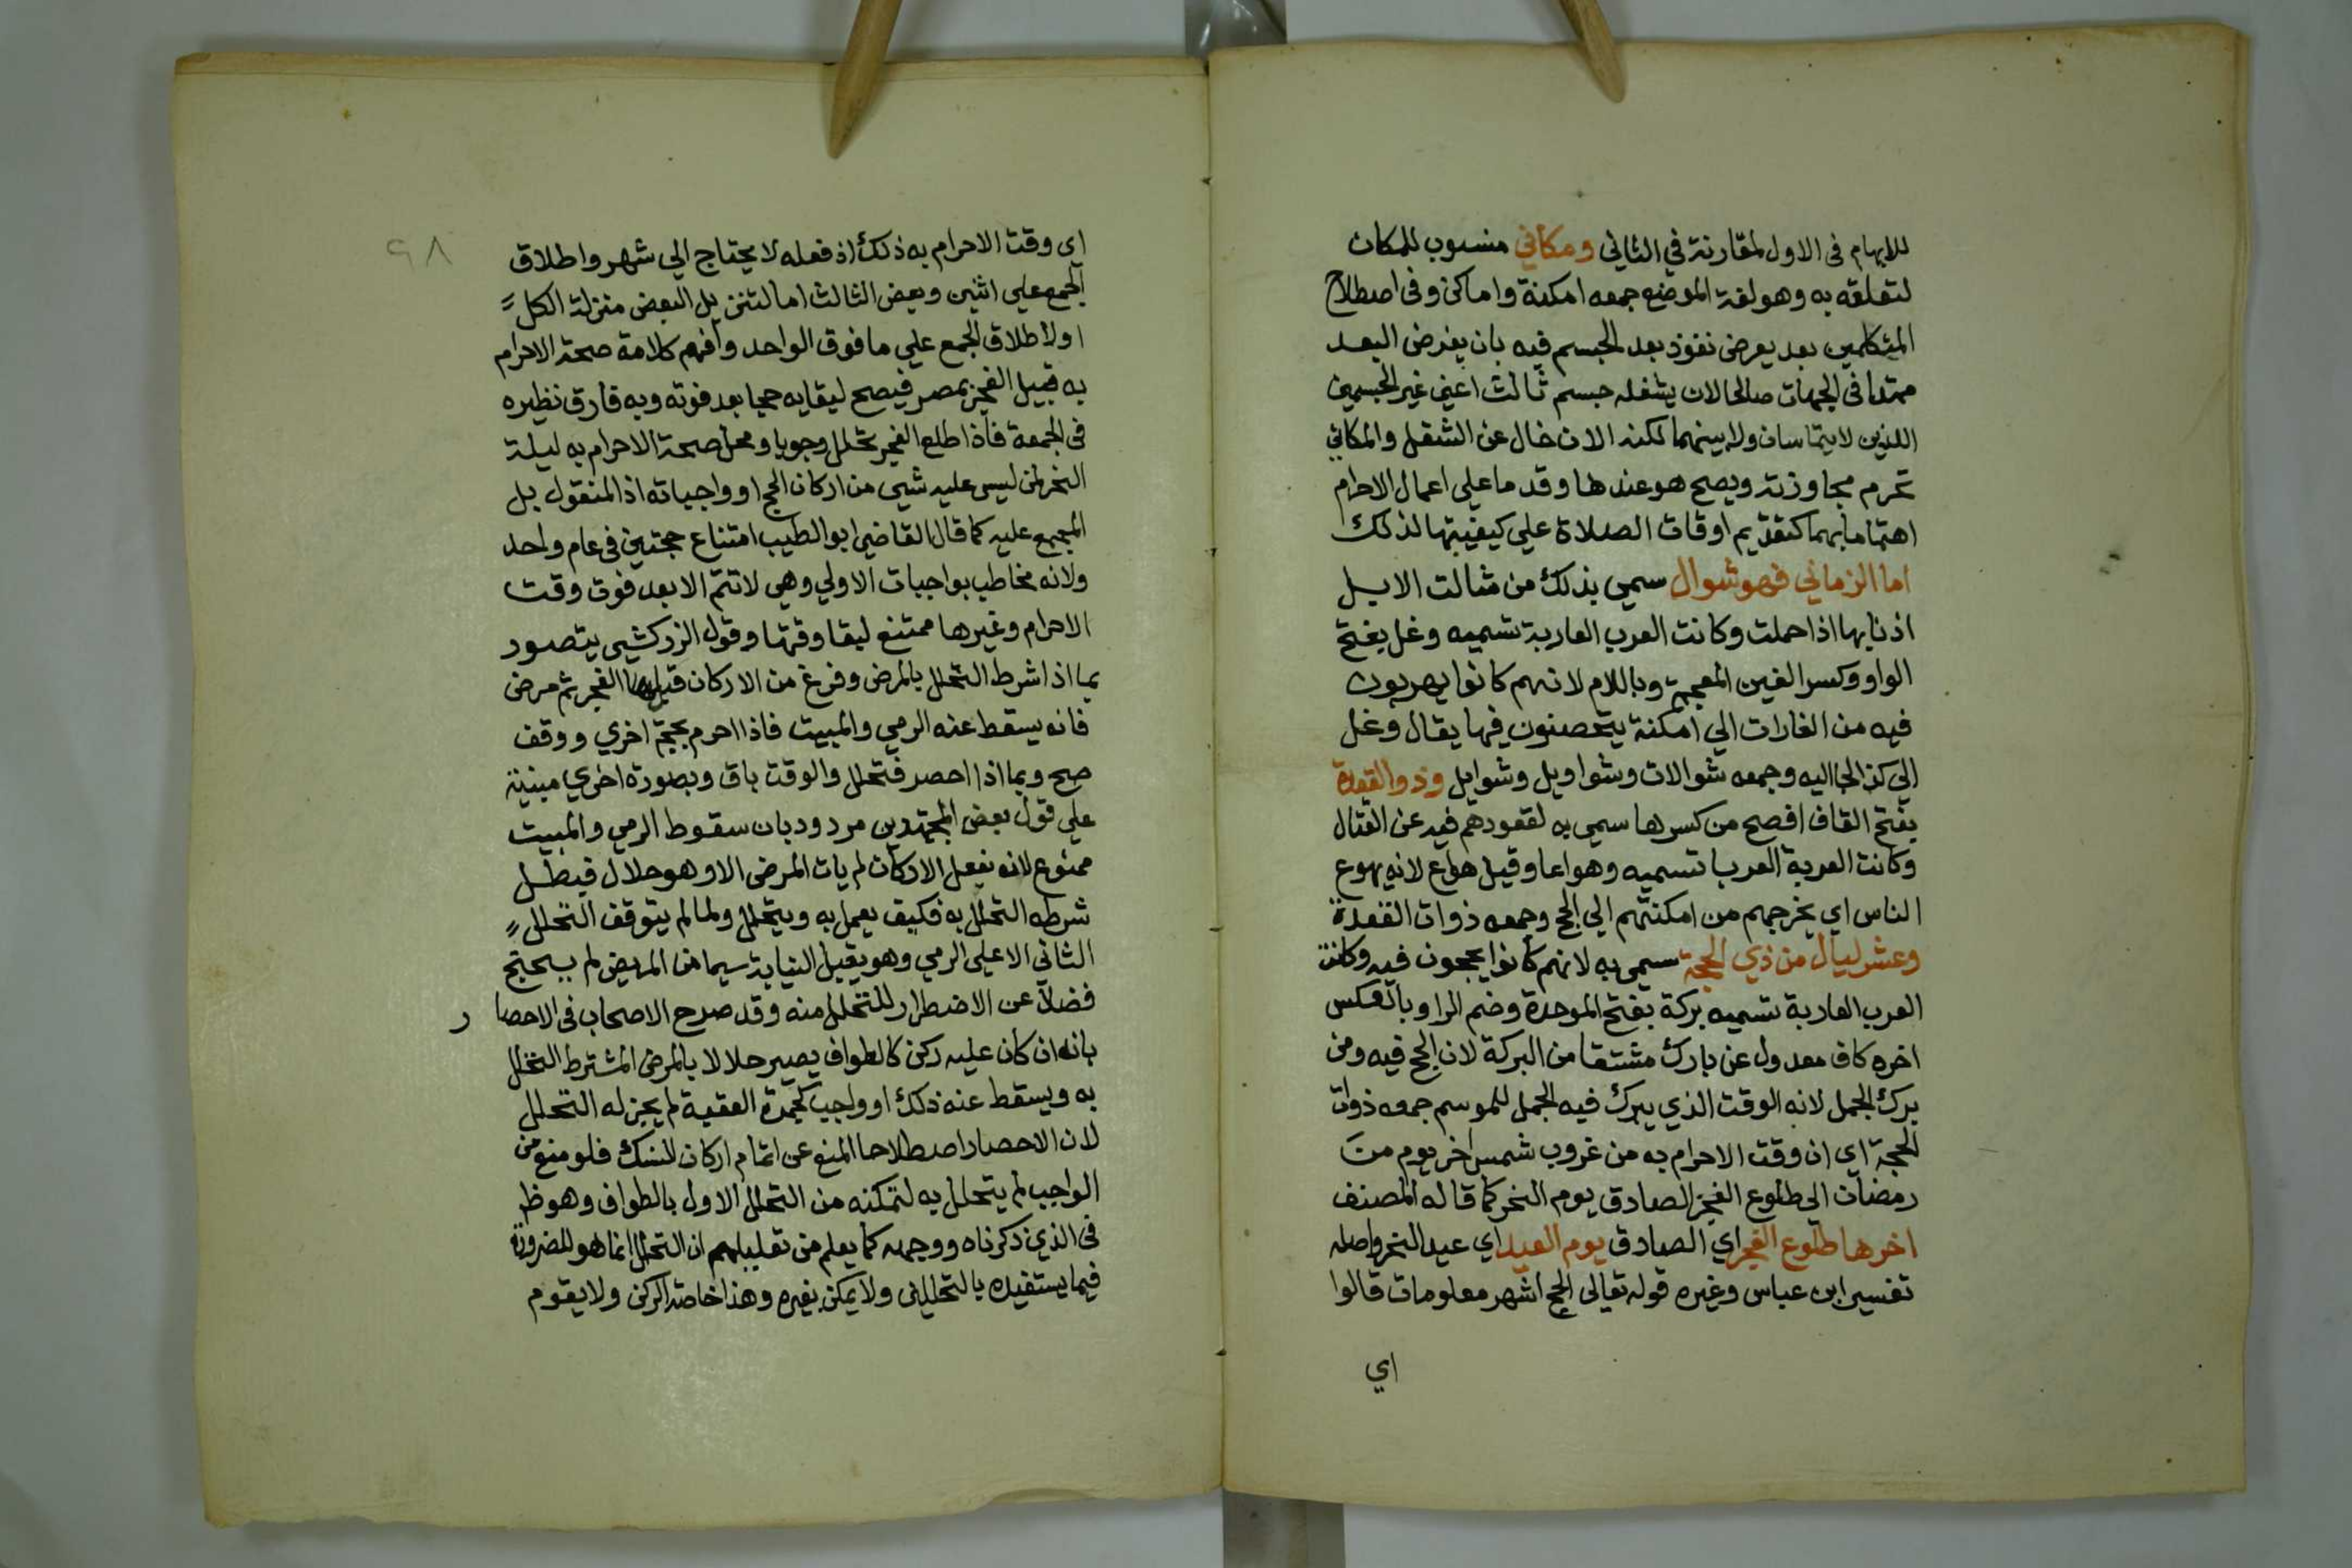 للابهام فى الاول لمقارنة في الثاني ومكاني منسوب للمكان
لتعلقه به وهو لغة الموضع جمعه امكنة واماكن وفى اصطلاح
المتكلمين بعد يعرض نفوذ بعد الجسم فيه بان يفرض البعد
ممتدا فى الجهات صالحا لان يشغله جسم ثالث اعني غير الجسمين
اللذين لا يتماسان ولا بينهما لكنه الان خال عن الشغل والمكاني
تحرم مجاوزته ويصح هو عندها وقد ما علي اعمال الاحرام
اهتماما بهما كتقديم اوقات الصلاة علي كيفيتها لذلك
اما الزماني فهو شوال سمي بذلك من شالت الابل
اذنابها اذا حملت وكانت العرب العاربة تسميه وغل بفتح
الواو وكسر الغين المعجمة وباللام لانهم كانوا يهربون
فيه من الغارات الي امكنة يتحصنون فيها يقال وغل
الي كذا لجا اليه وجمعه شوالات وشواويل وشوايل وذو القعدة
بفتح القاف افصح من كسرها سمي به لقعودهم فيه عن القتال
وكانت العربة العربا تسميه وهواعا وقيل هواع لانه يهوع
الناس اي يخرجهم من امكنتهم الي الحج وجمعه ذوات القعدة
وعشر ليال من ذي الحجة سمي به لانهم كانوا يحجون فيه وكانت
العرب العاربة تسميه بركة بفتح الموحدة وضم الرا وبالعكس
اخره كاف معدول عن بارك مشتقا من البركة لان الحج فيه ومن
برك الجمل لانه الوقت الذي يبرك فيه الجمل للموسم جمعه ذوات
الحجة اي ان وقت الاحرام به من غروب شمس اخر يوم من
رمضان الى طلوع الفجر الصادق يوم النحر كما قاله المصنف
اخرها طلوع الفجر اي الصادق يوم العيد اي عيد النحر واصله
تفسير ابن عباس وغيره قوله تعالى الحج اشهر معلومات قالوا
اي
٩٨
اي وقت الاحرام به ذلك اذ فعله لا يحتاج الي شهر واطلاق
الجمع علي اثنين وبعض الثالث اما لتنزيل البعض منزلة الكل
او لاطلاق الجمع علي ما فوق الواحد وافهم كلامه صحة الاحرام
به قبيل الفجر بمصر فيصح ليقايه حجا بعد فوته وبه فارق نظيره
فى الجمعة فاذا طلع الفجر تحلل وجوبا ومحل صحة الاحرام به ليلة
النحر لمن ليس عليه شي من اركان الحج او واجباته اذ المنقول بل
المجمع عليه كما قال القاضي ابو الطيب امتناع حجتين فى عام واحد
ولانه مخاطب بواجبات الاولي وهي لا تتم الا بعد فوت وقت
الاحرام وغيرها ممتنع لبقا وقتها وقول الزركشي يتصور
بما اذا شرط التحلل بالمرض وفرغ من الاركان قبل الفجر ثم مرض
فانه يسقط عنه الرمي والمبيت فاذا احرم بحجة اخري ووقف
صح وبما اذا احصر فتحلل والوقت باق وبصورة اخري مبنية
علي قول بعض المجتهدين مردود بان سقوط الرمي والمبيت
ممنوع لانه بفعل الاركان لم يات المرض الا وهو حلال فبطل
شرطه التحلل به فكيف يعمل به ويتحلل ولما لم يتوقف التحلل
الثاني الا علي الرمي وهو يقبل النيابة سيما من المريض لم يحتج
فضلا عن الاضطرار للتحلل منه وقد صرح الاصحاب فى الاحصار
بانه ان كان عليه ركن كالطواف يصير حلالا بالمرض المشترط التحلل
به ويسقط عنه ذلك او واجب كجمرة العقبة لم يجز له التحلل
لان الاحصار اصطلاحا المنع عن اتمام اركان النسك فلو منع من
الواجب لم يتحلل به لتمكنه من التحلل الاول بالطواف وهو ظ
فى الذي ذكرناه ووجهه كما يعلم من تعليلهم ان التحلل انما هو للضرورة
فيما يستفيده بالتحللين ولا يمكن بغيره وهذا خاصة الركن ولا يقوم